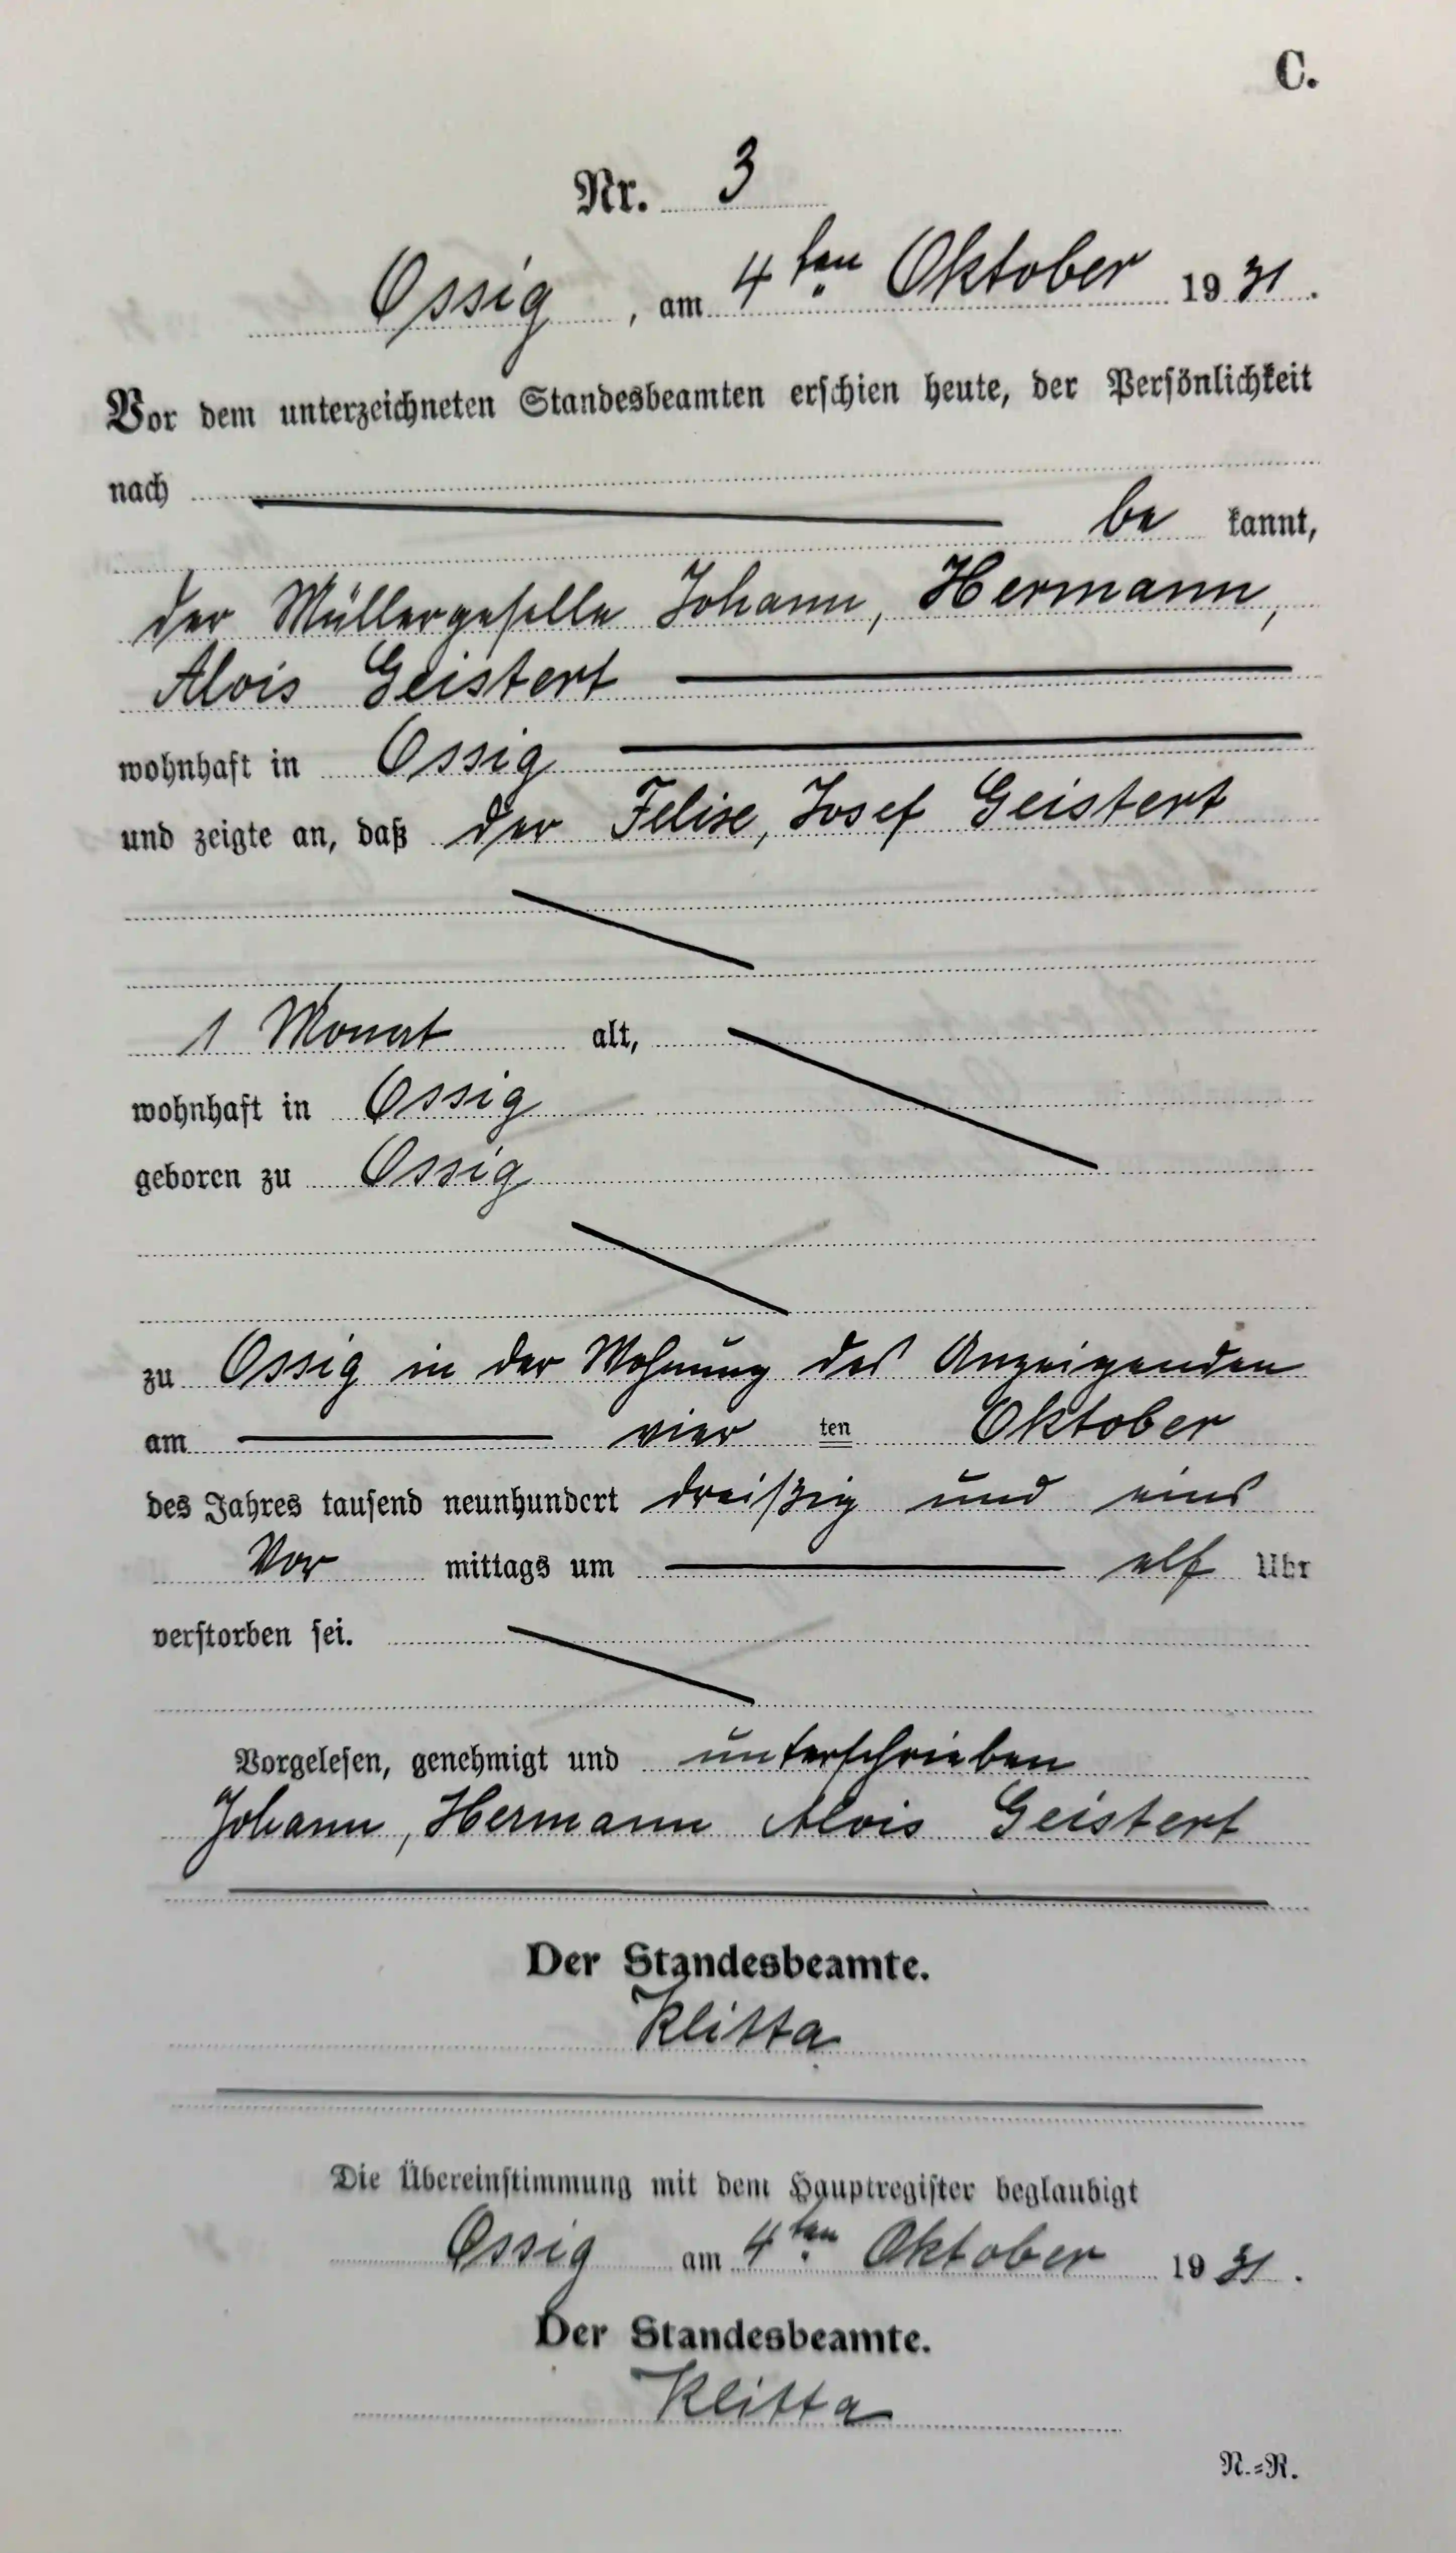 C.
Nr. 3
Ossig, am 4ten Oktober 1931.
Vor dem unterzeichneten Standesbeamten erschien heute, der Persönlichkeit
nach
be kannt,
der Müllergeselle Johann, Hermann,
Alois Geistert
wohnhaft in Ossig
und zeigte an, daß der Felixe, Josef Geistert
1 Monat alt,
wohnhaft in Ossig
geboren zu Ossig
zu Ossig in der Wohnung des Anzeigenden
am vier ten Oktober
des Jahres tausend neunhundert dreißig und eins
Vor mittags um elf Uhr
verstorben sei.
Vorgelesen, genehmigt und unterschrieben
Johann, Hermann Alois Geistert
Der Standesbeamte.
Klitta
Die Übereinstimmung mit dem Hauptregister beglaubigt
Ossig am 4ten Oktober 1931.
Der Standesbeamte.
Klitta
N.=R.